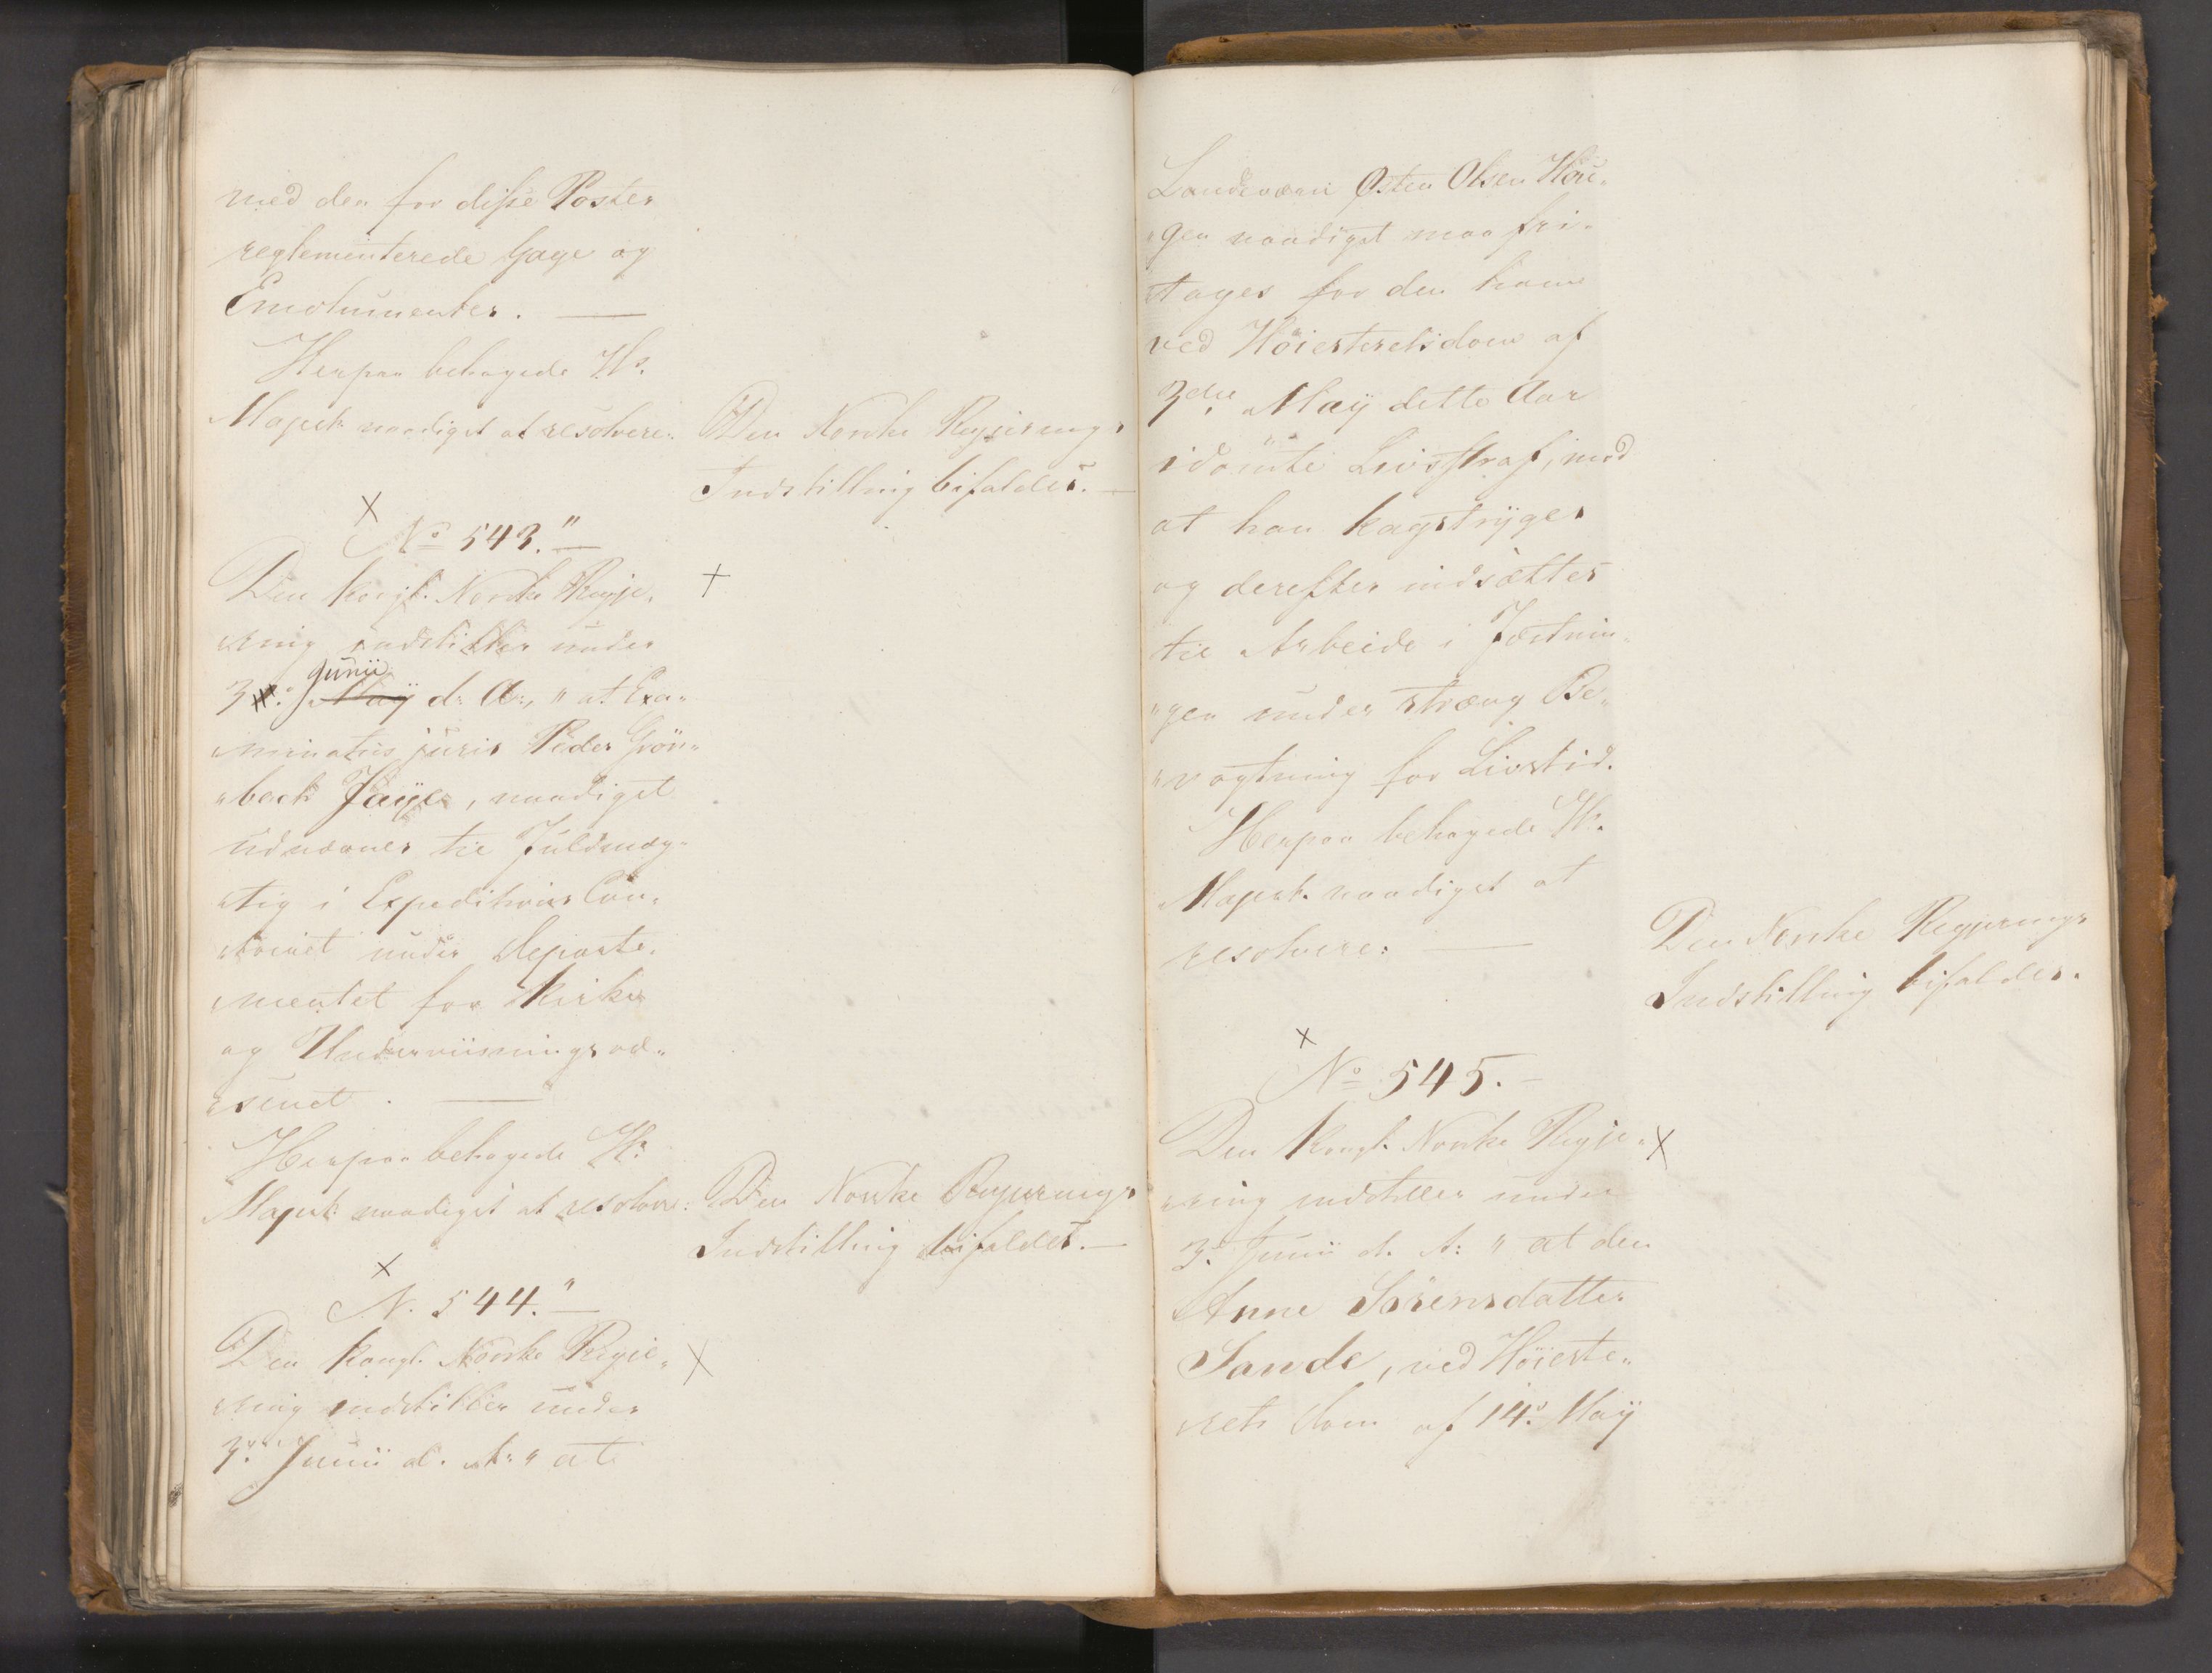 med den for disse Poster
reglementerede Gage og
Emolumenter. —
Herpaa behagede Hs.
Majest. naadigst at resolvere:
Den Norske Regjerings
Indstilling bifaldes. —
×
No 543." —
Den kongl. Norske Regje„ +
„ring indstiller under
Junii
3. May d: A:, „at Exa„
„minatus juris Peder Grön„
„bech Jaÿe, naadigst
udnævnes til Fuldmæg„
„tig i Expeditions Con„
„toiret under Departe„
„mentet for Kirke
og Underviisningsvæ„
„senet. —
Herpaa behagede Hs.
Majest: naadigst at resolvere:
Den Norske Regjerings
Indstilling bifaldes. —
×
N. 544." —
Den kongl. Norske Regje„ ×
„ring indstiller under
3. Junii d. A: „at
Landeværn Østen Olsen Hou„
„gen naadigst maa fri„
tages for den ham
ved Höiesteretsdom af
3die Maÿ dette Aar
idömte Livsstraf, mod
at han kagstrÿges
og derefter indsættes
til Arbeide i Fæstnin„
„gen under stræng Be„
„vogtning for Livstid.
Herpaa behagede Hs.
Majest. naadigst at
resolvere: —
Den Norske Regjerings
Indstilling bifaldes.
×
No 545. —
Den Kongl. Norske Regje„ ×
„ring indstiller under
3. Junii d. A: „at den
Anne Sörensdatter
Sande, ved Höieste„
„rets Dom af 14. Maÿ